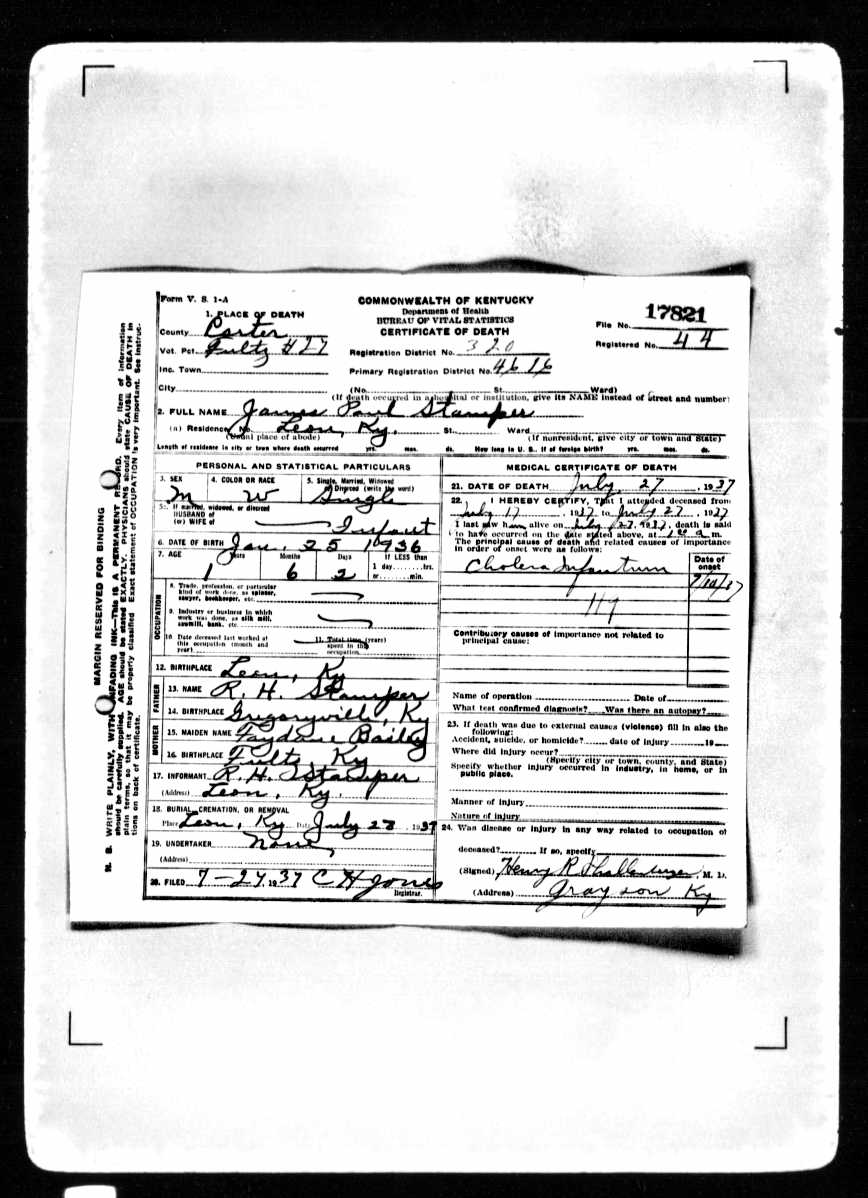 Form V. S. 1-A
COMMONWEALTH OF KENTUCKY
Department of Health
BUREAU OF VITAL STATISTICS
CERTIFICATE OF DEATH
File No. 17821
Registered No. 44
1. PLACE OF DEATH
County Carter
Vot. Pct. Fultz #27
Inc. Town
City
Registration District No. 320
Primary Registration District No. 4616
(No. St. Ward)
(If death occurred in a hospital or institution, give its NAME instead of street and number)
2. FULL NAME James Paul Stamper
(a) Residence No. Leon, Ky. St. Ward
(Usual place of abode) (If nonresident, give city or town and State)
Length of residence in city or town where death occurred yrs. mos. ds. How long in U. S., if of foreign birth? yrs. mos. ds.
PERSONAL AND STATISTICAL PARTICULARS
3. SEX M
4. COLOR OR RACE W
5. Single, Married, Widowed or Divorced (write the word) Single
5a. If married, widowed, or divorced
HUSBAND of
(or) WIFE of Infant
6. DATE OF BIRTH Jan. 25 1936
7. AGE Years Months Days If LESS than
1 6 2 1 day hrs.
or min.
OCCUPATION
8. Trade, profession, or particular
kind of work done, as spinner,
sawyer, bookkeeper, etc.
9. Industry or business in which
work was done, as silk mill,
sawmill, bank, etc.
10. Date deceased last worked at
this occupation (month and
year)
11. Total time (years)
spent in this
occupation
12. BIRTHPLACE Leon, Ky
FATHER
13. NAME R. H. Stamper
14. BIRTHPLACE Gregoryville, Ky
MOTHER
15. MAIDEN NAME Bailey
16. BIRTHPLACE Fultz, Ky
17. INFORMANT R. H. Stamper
(Address) Leon, Ky.
18. BURIAL, CREMATION, OR REMOVAL
Place Leon, Ky Date July 28, 1937
19. UNDERTAKER None
(Address)
20. FILED 7-27 1937 C H Jones
Registrar.
MEDICAL CERTIFICATE OF DEATH
21. DATE OF DEATH July 27, 1937
22. I HEREBY CERTIFY, That I attended deceased from
July 17, 1937 to July 27, 1937
I last saw him alive on July 27, 1937, death is said
to have occurred on the date stated above, at m.
The principal cause of death and related causes of importance
in order of onset were as follows:
Date of
onset
Cholera Infantum
119
Contributory causes of importance not related to
principal cause:
Name of operation Date of
What test confirmed diagnosis? Was there an autopsy?
23. If death was due to external causes (violence) fill in also the
following:
Accident, suicide, or homicide? date of injury 19
Where did injury occur?
(Specify city or town, county, and State)
Specify whether injury occurred in industry, in home, or in
public place.
Manner of injury
Nature of injury
24. Was disease or injury in any way related to occupation of
deceased? If so, specify
(Signed) Henry R M. D.
(Address) Grayson Ky
MARGIN RESERVED FOR BINDING
N. B. WRITE PLAINLY, WITH UNFADING INK—THIS IS A PERMANENT RECORD. Every item of information
should be carefully supplied. AGE should be stated EXACTLY. PHYSICIANS should state CAUSE OF DEATH in
plain terms, so that it may be properly classified. Exact statement of OCCUPATION is very important. See instruc-
tions on back of certificate.